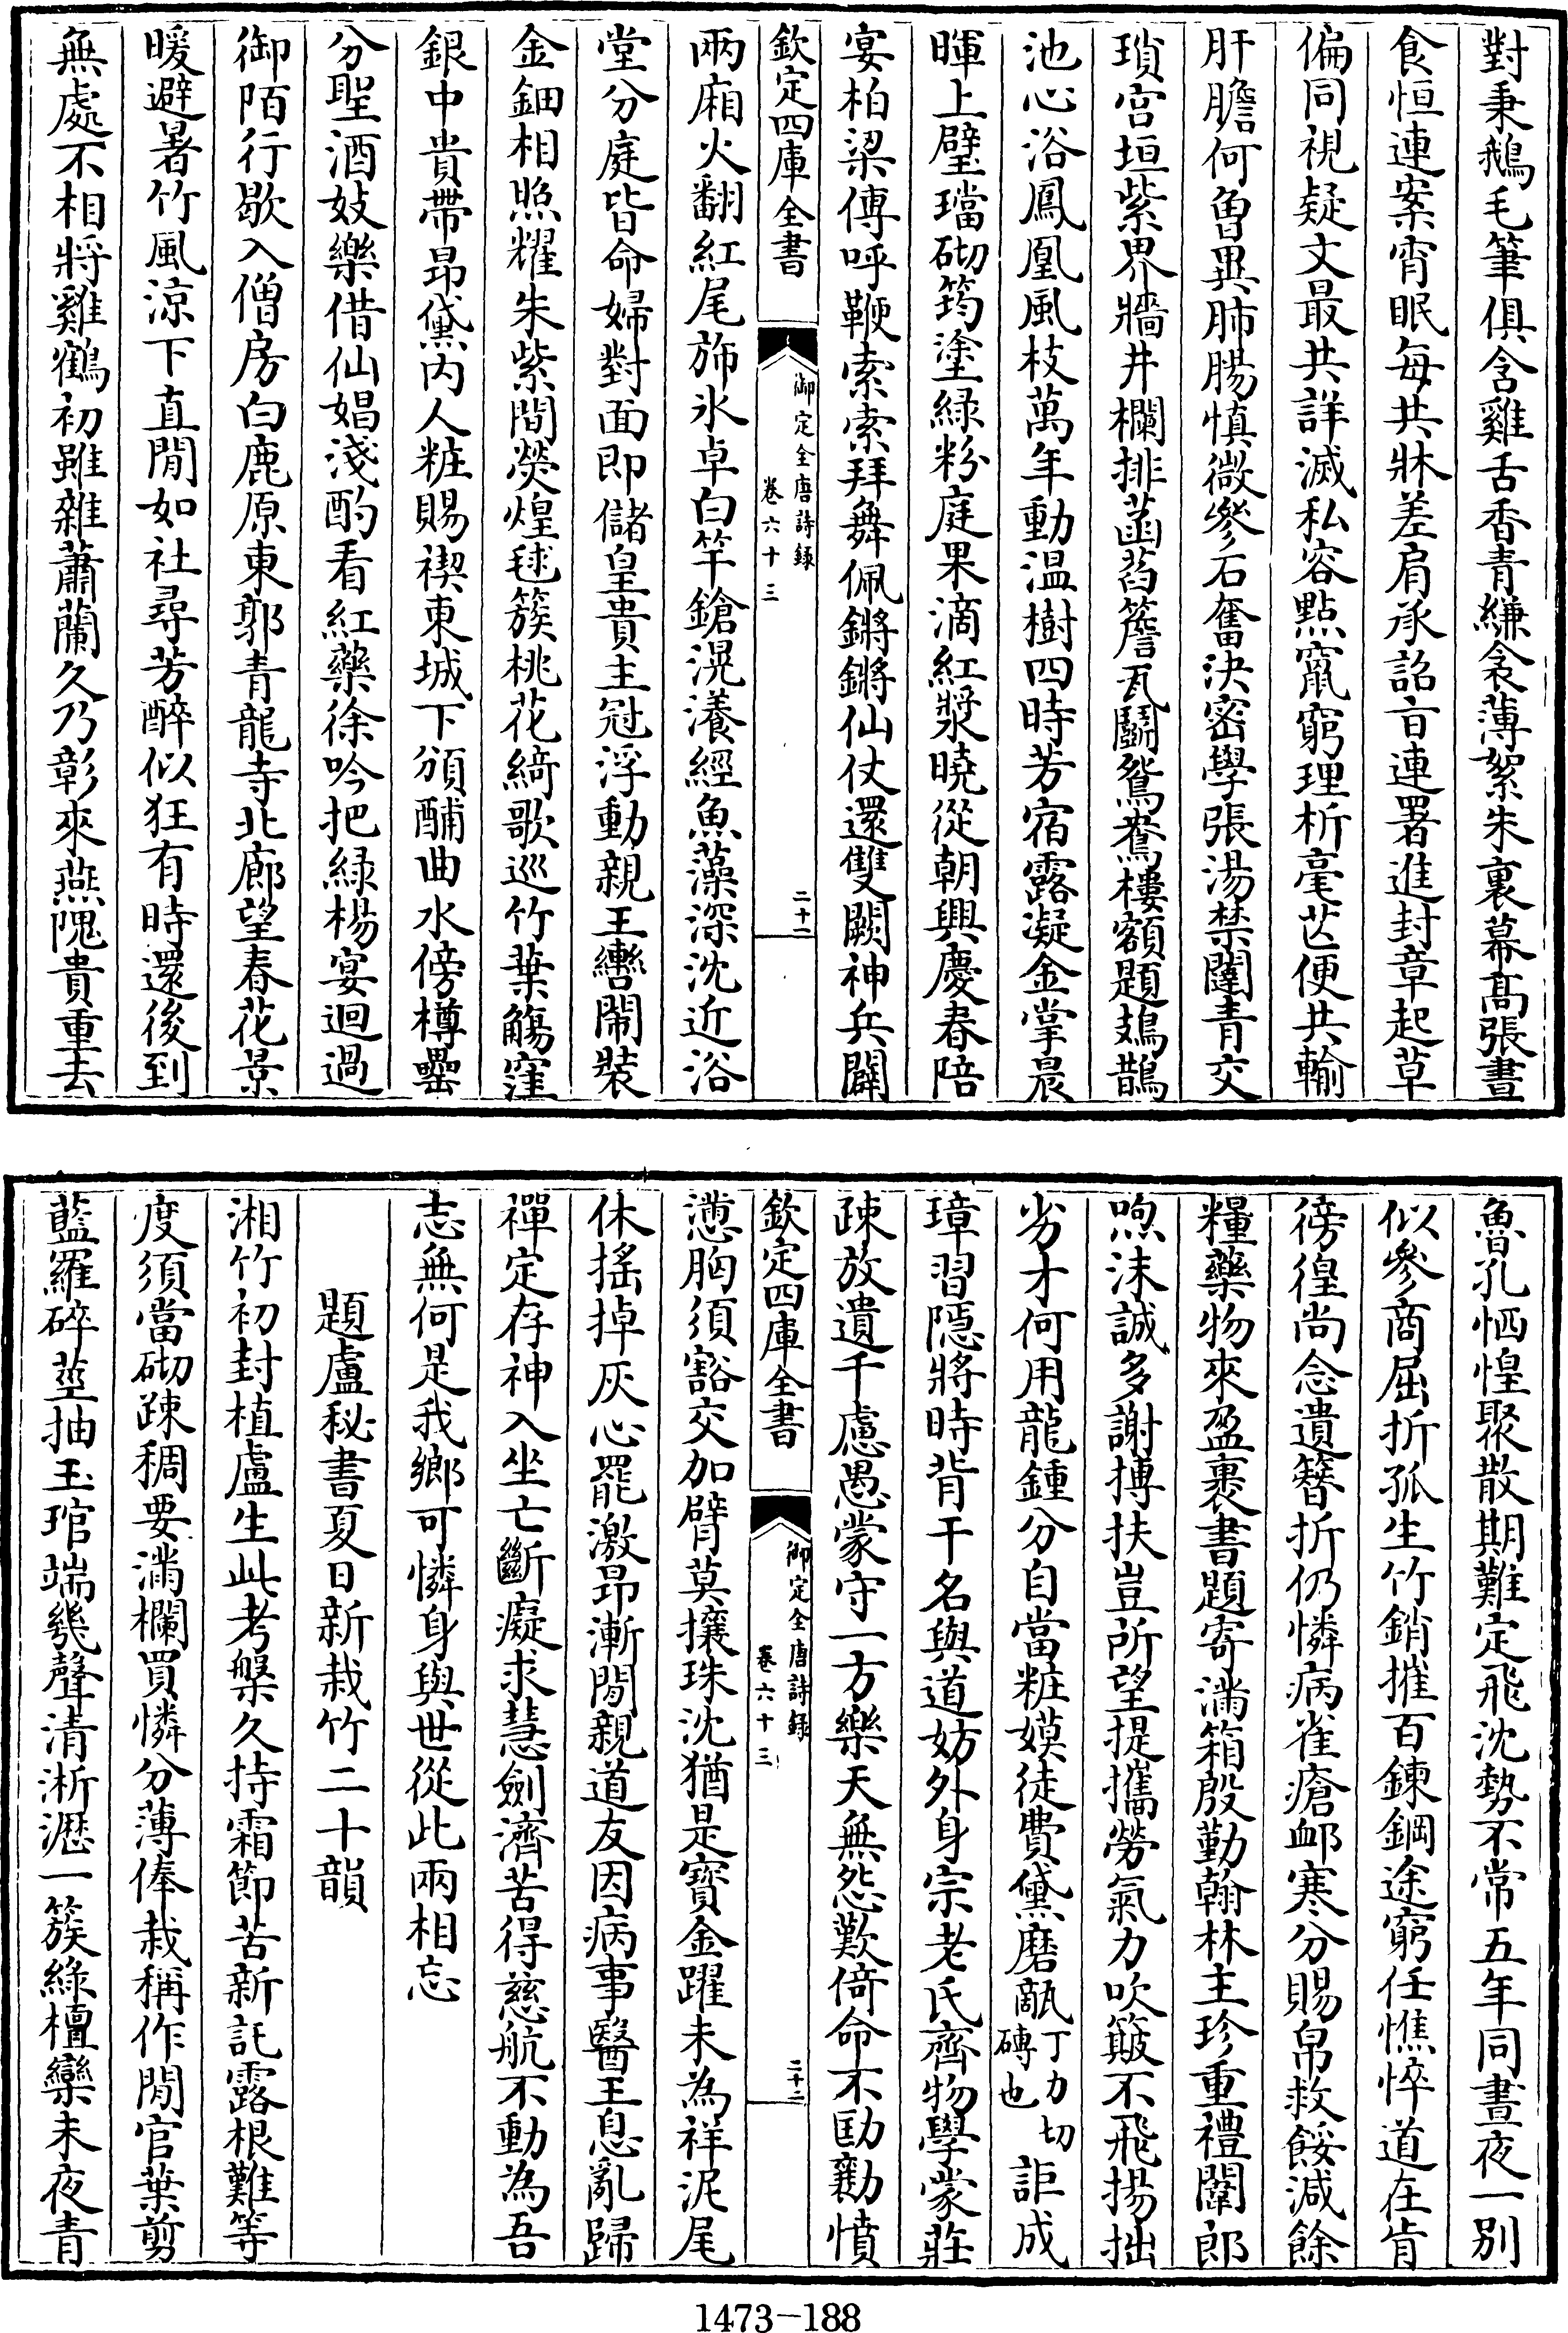 對秉鵝毛筆俱含雞舌香青縑衾薄絮朱裏幕髙張晝
食恒連案宵眠每共牀差肩承詔㫖連署進封章起草
偏同視疑文最共詳滅私容點竄窮理析毫芒便共輸
肝膽何曾異肺腸慎微參石奮決密學張湯禁闥青交
瑣宫垣紫界牆井欄排菡萏簷瓦鬭鴛鴦樓額題鳷鵲
池心浴鳳凰風枝萬年動温樹四時芳宿露凝金掌晨
暉上璧璫砌筠塗綠粉庭果滴紅漿曉從朝興慶春陪
宴柏梁傳呼鞭索索拜舞佩鏘鏘仙仗還雙闕神兵闢
欽定四庫全書
御定全唐詩錄
卷六十三
二十一
兩廂火翻紅尾斾氷卓白竿鎗滉瀁經魚藻深沈近浴
堂分庭皆命婦對面即儲皇貴主冠浮動親王轡閙裝
金鈿相照耀朱紫間熒煌毬簇桃花綺歌巡竹葉觴窪
銀中貴帶昻黛内人粧賜禊東城下頒酺曲水傍樽罍
分聖酒妓樂借仙娼淺酌看紅藥徐吟把綠楊宴迴過
御陌行歇入僧房白鹿原東郭青龍寺北廊望春花景
暖避暑竹風涼下直閒如社尋芳醉似狂有時還後到
無處不相將雞鶴初雖雜蕭蘭久乃彰來燕隗貴重去
魯孔恓惶聚散期難定飛沈勢不常五年同晝夜一别
似參商屈折孤生竹銷摧百鍊鋼途窮任憔悴道在肯
徬徨尚念遺簪折仍憐病雀瘡䘏寒分賜帛救餒減餘
糧藥物來盈裹書題寄滿箱殷勤翰林主珍重禮闈郎
喣沫誠多謝搏扶豈所望提攜勞氣力吹簸不飛揚拙
劣才何用龍鍾分自當粧嫫徒費黛磨甋丁力切磚也詎成
璋習隱將時背干名與道妨外身宗老氏齊物學蒙莊
疎放遺千慮愚蒙守一方樂天無怨歎倚命不劻勷憤
欽定四庫全書
御定全唐詩錄
卷六十三
二十二
懣胸須豁交加臂莫攘珠沈猶是寶金躍未為祥泥尾
休搖掉灰心罷激昻漸閒親道友因病事醫王息亂歸
禪定存神入坐亡斷癡求慧劒濟苦得慈航不動為吾
志無何是我鄉可憐身與世從此兩相忘
題盧秘書夏日新栽竹二十韻
湘竹初封植盧生此考槃久持霜節苦新託露根難等
度須當砌疎稠要滿欄買憐分薄俸栽稱作閒官葉剪
藍羅碎莖抽玉琯端幾聲清淅瀝一簇綠檀欒未夜青
1473-188